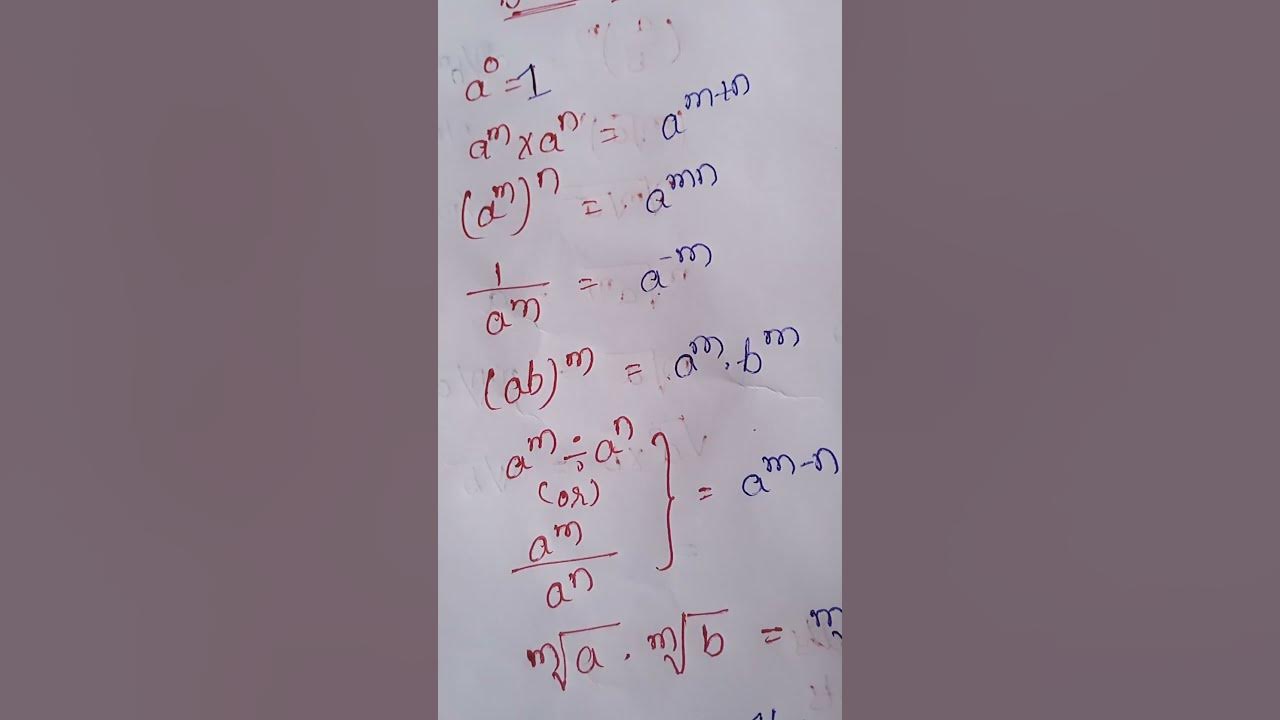 a⁰ = 1
aᵐ × aⁿ = aᵐ⁺ⁿ
(aᵐ)ⁿ = aᵐⁿ
1/aᵐ = a⁻ᵐ
(ab)ᵐ = aᵐ . bᵐ
aᵐ ÷ aⁿ
(or)
aᵐ/aⁿ
} = aᵐ⁻ⁿ
ᵐ√a . ᵐ√b = ᵐ